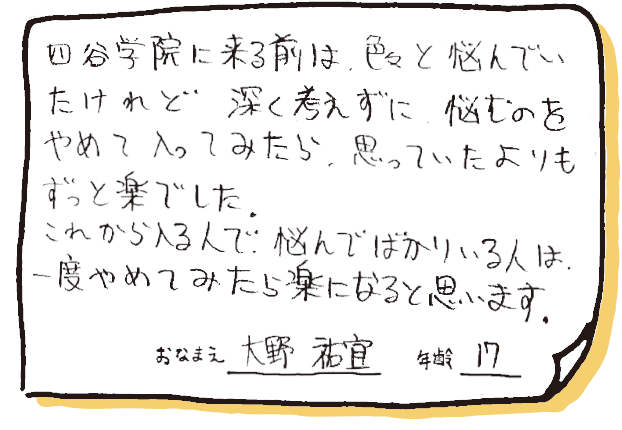 四谷学院に来る前は、色々と悩んでい
たけれど 深く考えずに、悩むのを
やめて入ってみたら、思っていたよりも
ずっと楽でした。
これから入る人で、悩んでばかりいる人は、
一度やめてみたら楽になると思います。
おなまえ 大野 祐宜 年齢 17